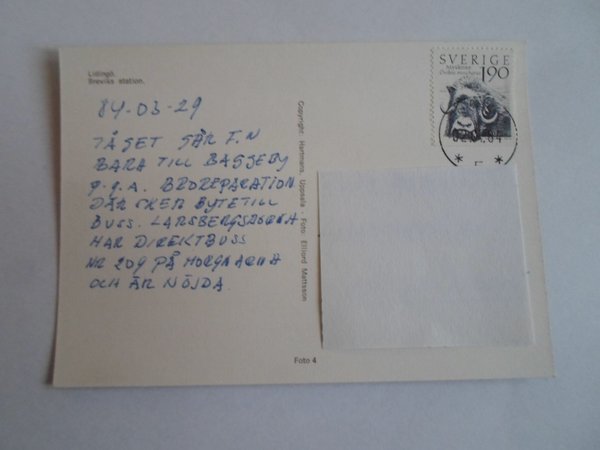 Lidingö.
Breviks station.
84-03-29
TÅGET GÅR F.N
BARA TILL BAGGEBY
P.G.A. BROREPARATION
DÄR SKER BYTE TILL
BUSS. LARSBERGSBORNA
HAR DIREKTBUSS
NR 209 PÅ MORGNARNA
OCH ÄR NÖJDA.
Copyright: Hartmans, Uppsala . Foto: Elfjord Mattsson
Foto 4
SVERIGE
Myskoxe
Ovibos moschatus
190